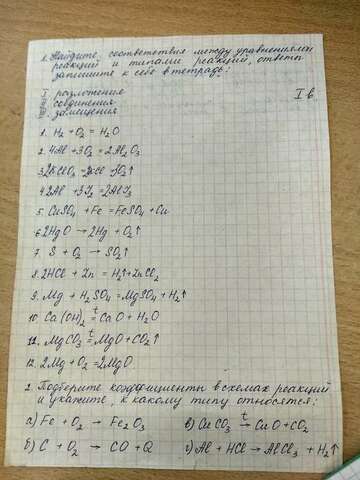 1. Найдите соответствия между уравнениями
реакций и типами реакций, ответы
запишите к себе в тетрадь:
разложения
соединения
замещения
I в.
1. H₂ + O₂ = H₂O
2. 4Al + 3O₂ = 2Al₂O₃
3. 2KClO₃ = 2KCl + 3O₂↑
4. 2Al + 3I₂ = 2AlI₃
5. CuSO₄ + Fe = FeSO₄ + Cu
6. 2HgO → 2Hg + O₂↑
7. S + O₂ → SO₂↑
8. 2HCl + Zn = H₂↑ + ZnCl₂
9. Mg + H₂SO₄ = MgSO₄ + H₂↑
10. Ca(OH)₂ =ᵗ CaO + H₂O
11. MgCO₃ =ᵗ MgO + CO₂↑
12. 2Mg + O₂ = 2MgO
2. Подберите коэффициенты в схемах реакций
и укажите, к какому типу относятся:
а) Fe + O₂ → Fe₂O₃ в) CuCO₃ →ᵗ CuO + CO₂
б) C + O₂ → CO + Q г) Al + HCl → AlCl₃ + H₂↑